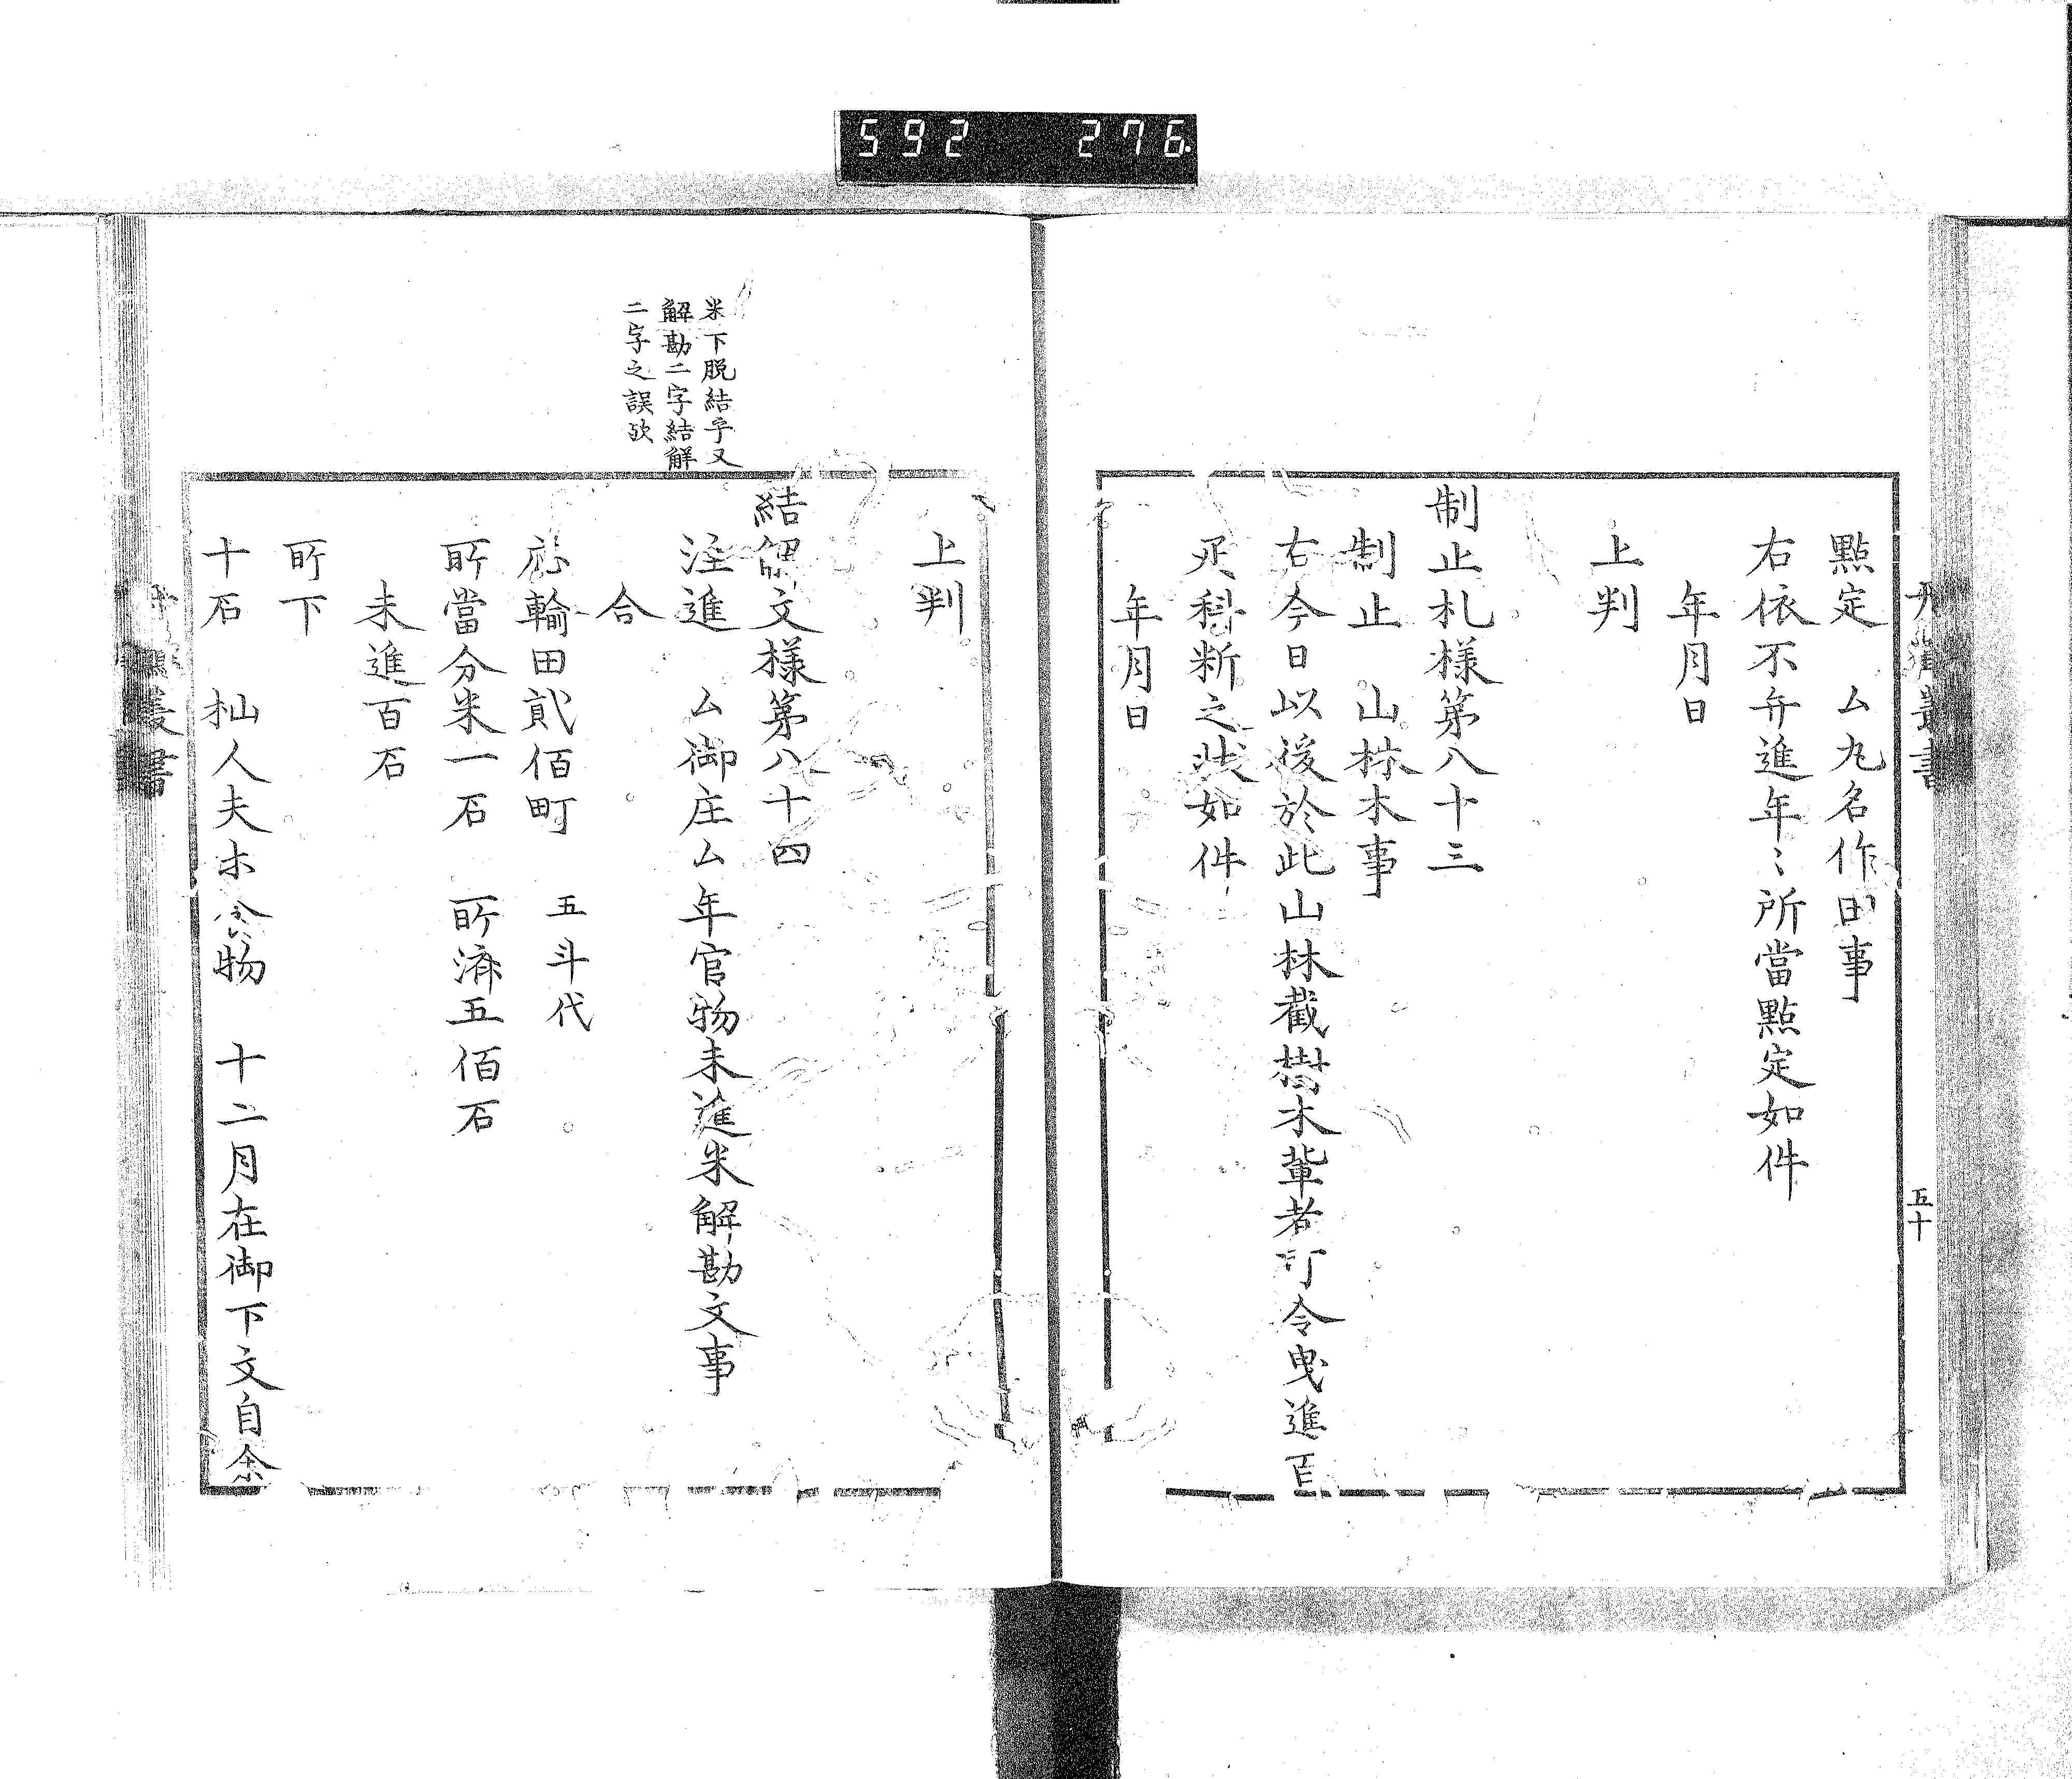 592 276
五十
點定 ム丸名作田事
右依不弁進年〻所當點定如件
年月日
上判
制止札樣第八十三
制止 山林木事
右今日以後於此山林截樹木輩者可令曳進百
疋科断之状如件
年月日
上判
米下脱結字又
解勘二字結解
二字之誤欤
結解文樣第八十四
注進 ム御庄ム年官物未進米解勘文事
合
応輸田貮佰町 五斗代
所當分米一石 所済五佰石
未進百石
所下
十石 杣人夫木食物 十二月在御下文自余
叢書